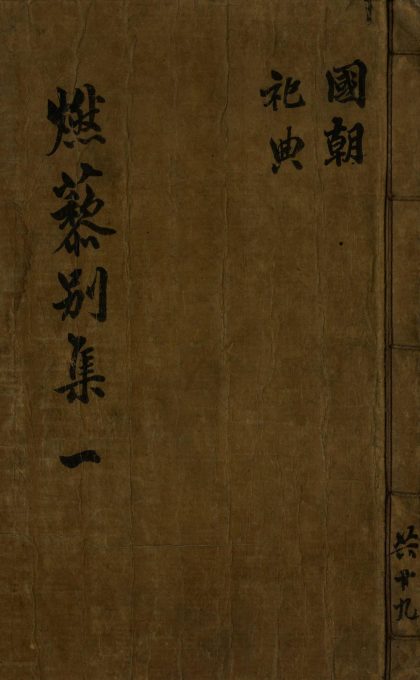 國朝
祀典
燃藜別集 一
共廿九